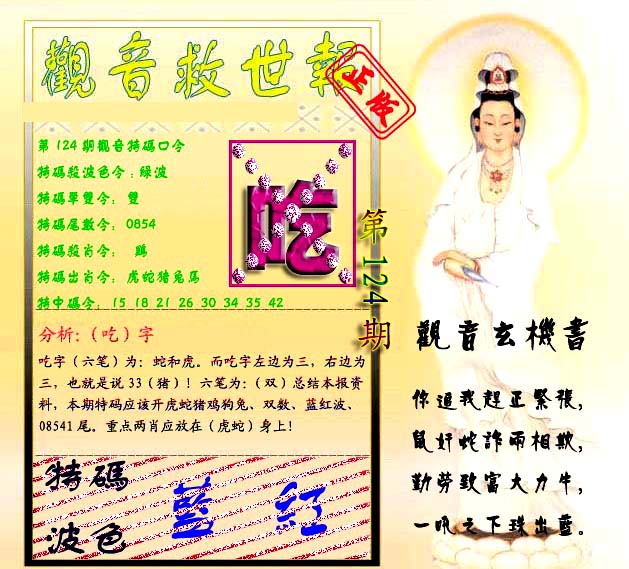 觀音救世報
正版
第124期觀音特碼口令
特碼殺波色令:綠波
特碼單雙令: 雙
特碼尾數令: 0854
特碼殺肖令: 鷄
特碼出肖令: 虎蛇猪兔馬
特中碼令: 15 18 21 26 30 34 35 42
吃
第124期
分析:(吃)字
吃字(六笔)为:蛇和虎。而吃字左边为三,右边为
三,也就是说33(猪)!六笔为:(双)总结本报资
料,本期特码应该开虎蛇猪鸡狗兔、双数、蓝红波、
08541尾。重点两肖应放在(虎蛇)身上!
特碼
波色
藍 红
觀音玄機書
你追我趕正緊張,
鼠奸蛇詐兩相欺,
勤勞致富大力牛,
一吼之下珠出盤。